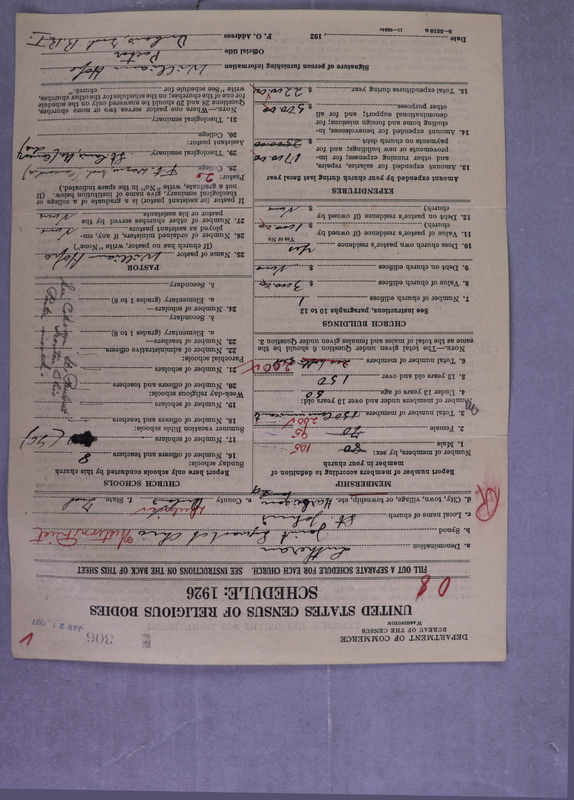 306
JAN 21 1927
DEPARTMENT OF COMMERCE
BUREAU OF THE CENSUS
WASHINGTON
UNITED STATES CENSUS OF RELIGIOUS BODIES
SCHEDULE: 1926
08
FILL OUT SEPARATE SCHEDULE FOR EACH CHURCH. SEE INSTRUCTIONS ON THE BACK OF THIS SHEET
a. Denomination Lutheran
b. Synod Joint Synod of Ohio Western Dist
c. Local name of church St Johns
d. City, town, village, or township, etc. e. County f. State Ind
MEMBERSHIP
Report number of members according to definition of member in your church
Number of members, by sex:
1. Male 80 105
2. Female 70 95
3. Total number of members 150 Communicants 200
Number of members under and over 13 years old:
4. Under 13 years of age 50
5. 13 years old and over 150
6. Total number of members 200
NOTE.—The total given under Question 6 should be the same as the total of males and females given under Question 3.
CHURCH BUILDINGS
See instructions, paragraphs 10 to 12
7. Number of church edifices 1
8. Value of church edifices $ 3000.00
9. Debt on church edifices $ None
10. Does church own pastor's residence Yes
Yes or No
11. Value of pastor's residence (if owned by church) $ 1000.00
12. Debt on pastor's residence (if owned by church) $ None
EXPENDITURES
Amount expended by your church during last fiscal year
13. Amount expended for salaries, repairs, and other running expenses; for improvements or new buildings; and payments on church debt $ 1700.00
14. Amount expended for benevolences, including home and foreign missions; for denominational support; and for all other purposes $ 500.00
15. Total expenditures during year $ 2200.00
CHURCH SCHOOLS
Report here only schools conducted by this church
Sunday schools:
16. Number of officers and teachers 8
17. Number of scholars
Summer vacation Bible schools:
18. Number of officers and teachers
19. Number of scholars
Week-day religious schools:
20. Number of officers and teachers
21. Number of scholars
Parochial schools:
22. Number of administrative officers
23. Number of teachers—
a. Elementary (grades 1 to 8)
b. Secondary
24. Number of scholars—
a. Elementary (grades 1 to 8)
b. Secondary
PASTOR
25. Name of pastor William Hofe
(If church has no pastor, write "None")
26. Number of ordained ministers, if any, employed as assistant pastors None
27. Number of other churches served by the pastor or his assistants None
If pastor (or assistant pastor) is a graduate of a college or theological seminary, give name of institution below. (If not a graduate, write "No" in the space indicated.)
Pastor:
28. College
29. Theological seminary
Assistant pastor:
30. College
31. Theological seminary
NOTE.—Where one pastor serves two or more churches, Questions 25 and 29 should be answered only on the schedule for one of the churches; on the schedules for the other churches, write "See schedule for church."
Signature of person furnishing information William Hofe
Official title Pastor
P. O. Address Ind R.R.1.
Date 192
8-5518a